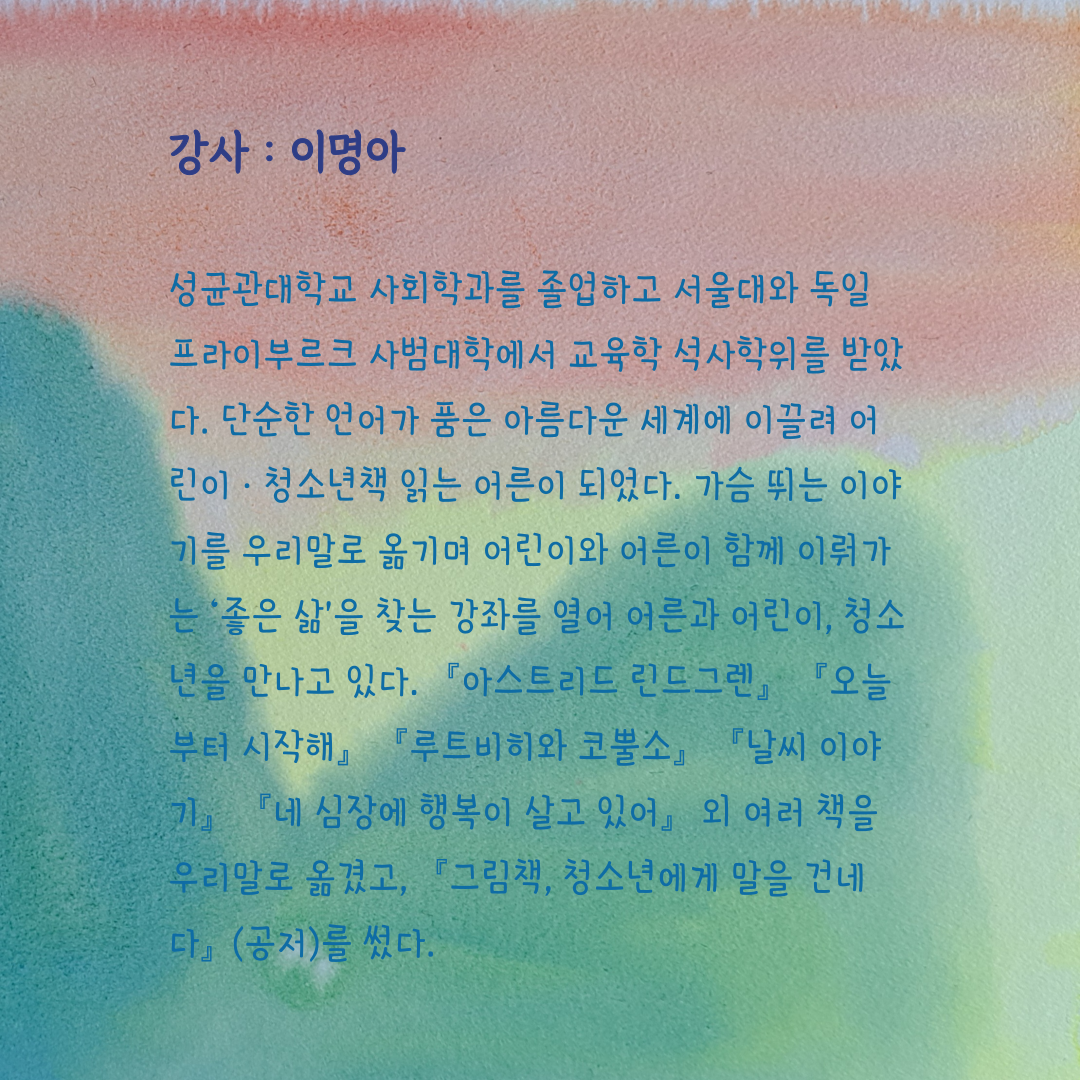 강사 : 이명아
성균관대학교 사회학과를 졸업하고 서울대와 독일
프라이부르크 사범대학에서 교육학 석사학위를 받았
다. 단순한 언어가 품은 아름다운 세계에 이끌려 어
린이 · 청소년책 읽는 어른이 되었다. 가슴 뛰는 이야
기를 우리말로 옮기며 어린이와 어른이 함께 이뤄가
는 ‘좋은 삶'을 찾는 강좌를 열어 어른과 어린이, 청소
년을 만나고 있다. 『아스트리드 린드그렌』 『오늘
부터 시작해』 『루트비히와 코뿔소』 『날씨 이야
기』 『네 심장에 행복이 살고 있어』 외 여러 책을
우리말로 옮겼고, 『그림책, 청소년에게 말을 건네
다』(공저)를 썼다.